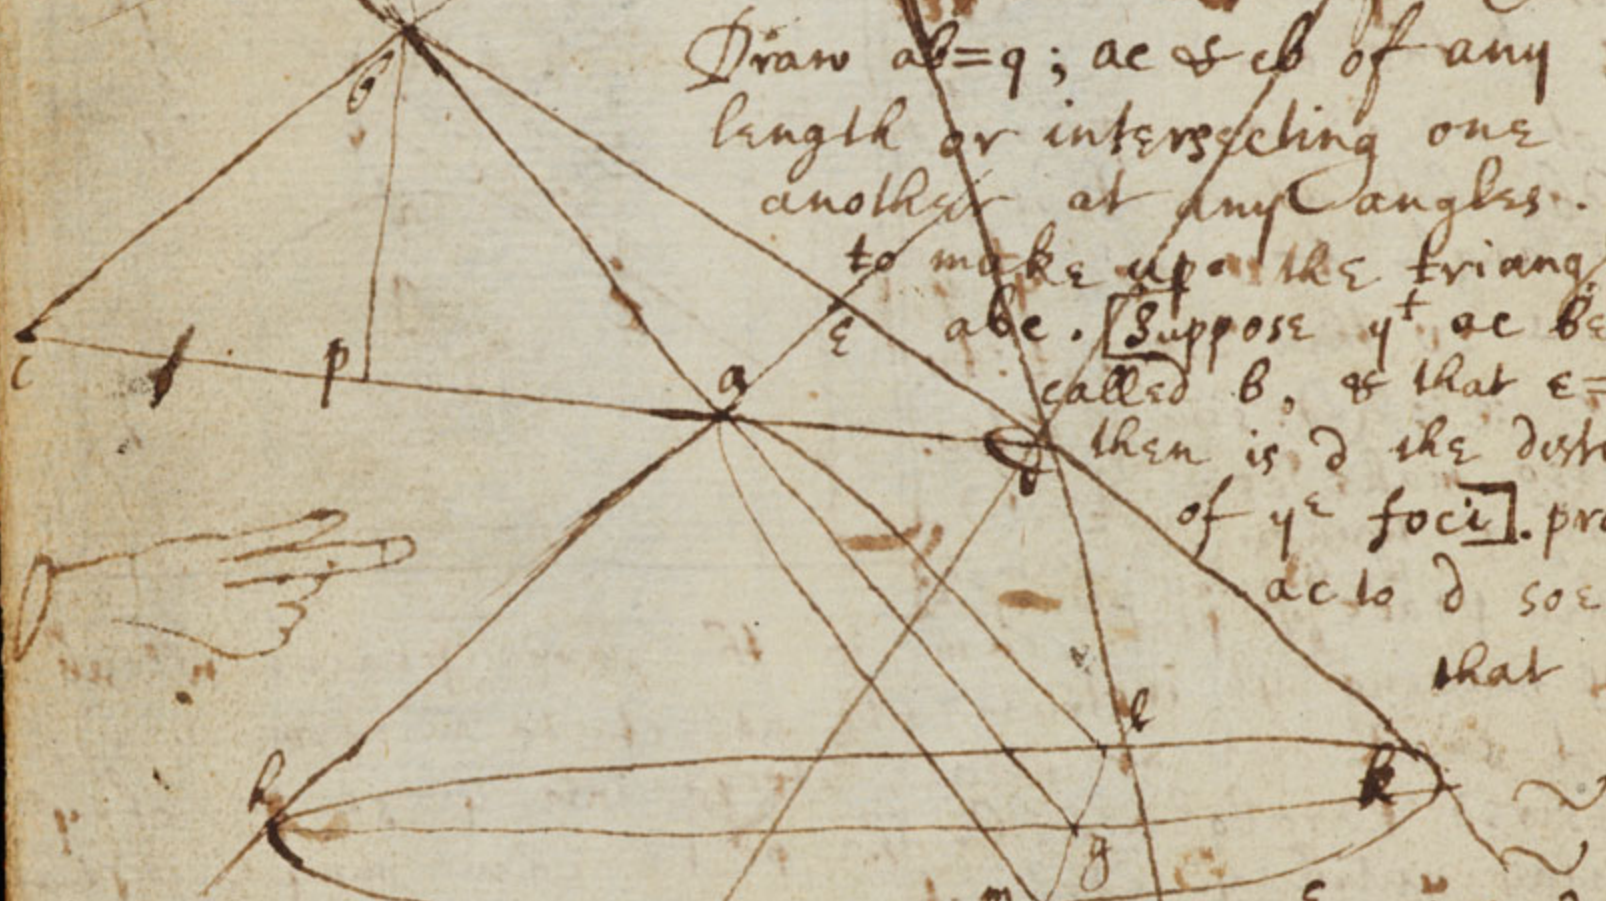 Draw ab=q; ac & cb of any
length or intersecting one
another at any angles.
to make upe the triang
abc. [Suppose yt ac be
called b, & that c=
then is d the dista
of ye foci]. pro
ac to d soe
that
b
c
p
a
ε
l
h
k
g
m